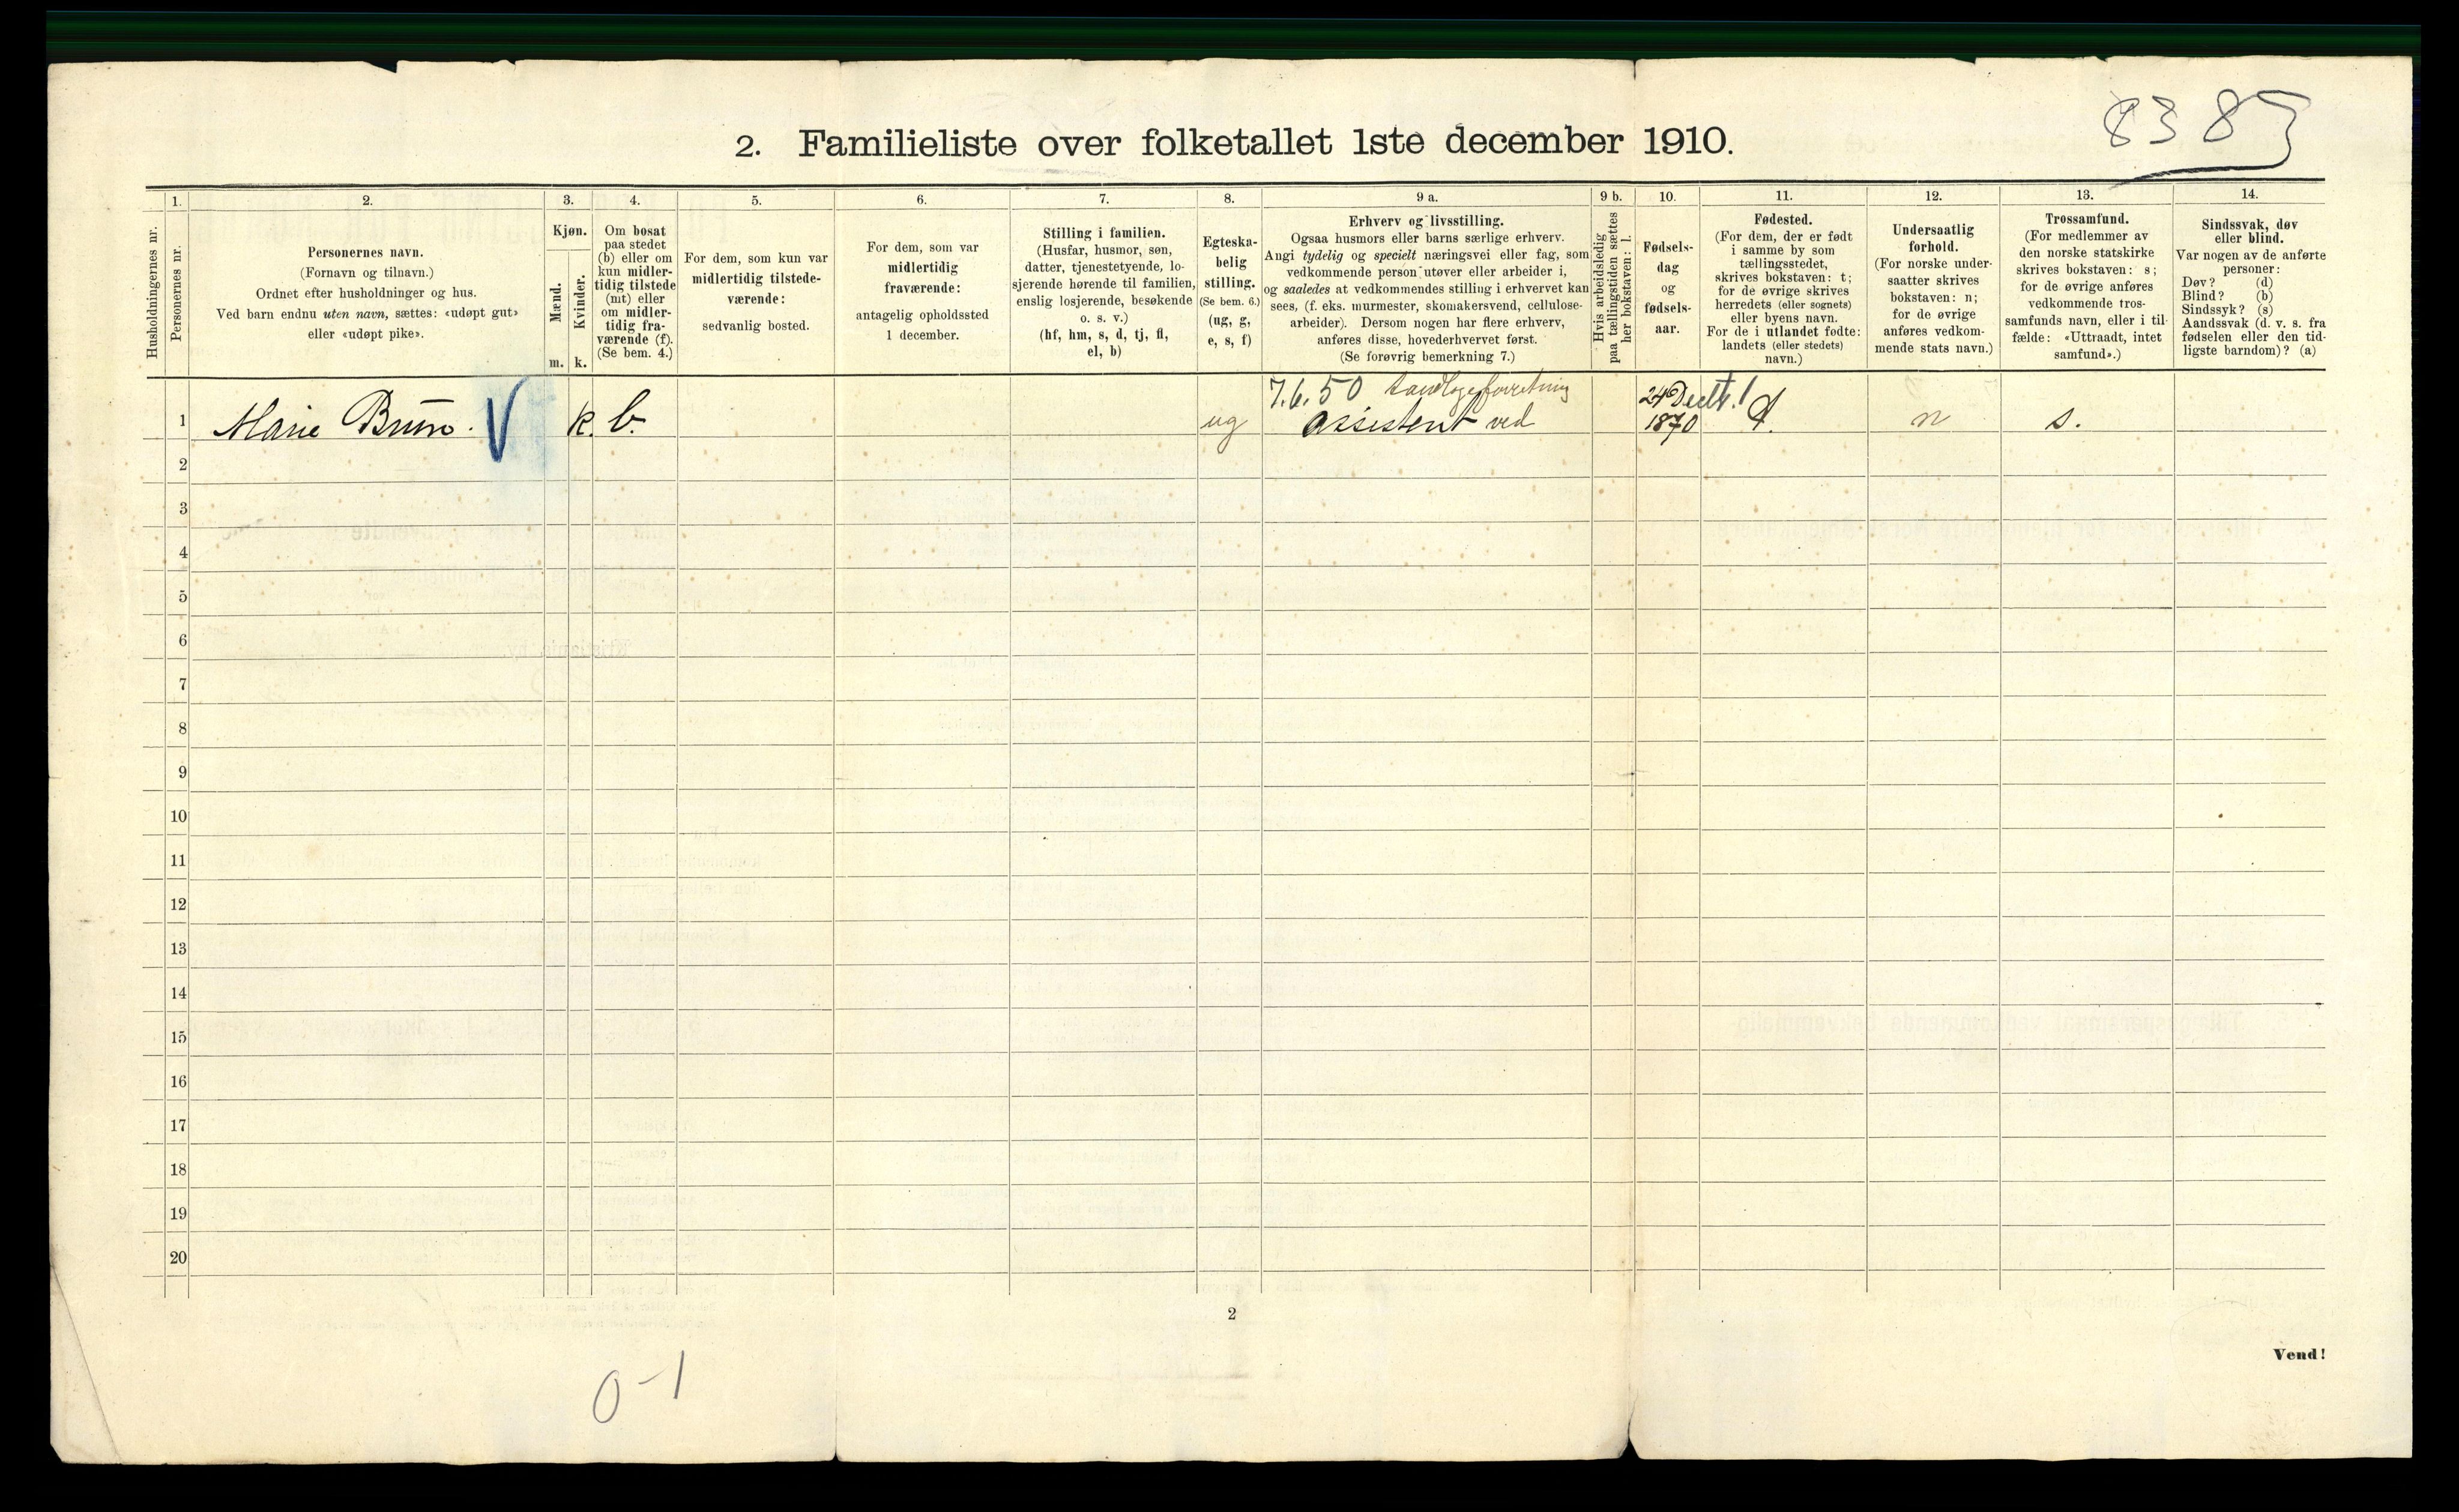 8383
2. Familieliste over folketallet 1ste december 1910.
Husholdningernes nr.
1.
Personernes nr.
2.
Personernes navn.
(Fornavn og tilnavn.)
Ordnet efter husholdninger og hus.
Ved barn endnu uten navn, sættes: «udøpt gut»
eller «udøpt pike».
3.
Kjøn.
Mænd.
Kvinder.
m. k.
4.
Om bosat
paa stedet
(b) eller om
kun midler-
tidig tilstede
(mt) eller
om midler-
tidig fra-
værende (f).
(Se bem. 4.)
5.
For dem, som kun var
midlertidig tilstede-
værende:
sedvanlig bosted.
6.
For dem, som var
midlertidig
fraværende:
antagelig opholdssted
1 december.
7.
Stilling i familien.
(Husfar, husmor, søn,
datter, tjenestetyende, lo-
sjerende hørende til familien,
enslig losjerende, besøkende
o. s. v.)
(hf, hm, s, d, tj, fl,
el, b)
8.
Egteska-
belig
stilling.
(Se bem. 6.)
(ug, g,
e, s, f)
9 a.
Erhverv og livsstilling.
Ogsaa husmors eller barns særlige erhverv.
Angi tydelig og specielt næringsvei eller fag, som
vedkommende person utøver eller arbeider i,
og saaledes at vedkommendes stilling i erhvervet kan
sees, (f. eks. murmester, skomakersvend, cellulose-
arbeider). Dersom nogen har flere erhverv,
anføres disse, hovederhvervet først.
(Se forøvrig bemerkning 7.)
9 b.
Hvis arbeidsledig
paa tællingstiden sættes
her bokstaven: l.
10.
Fødsels-
dag
og
fødsels-
aar.
11.
Fødested.
(For dem, der er født
i samme by som
tællingsstedet,
skrives bokstaven: t;
for de øvrige skrives
herredets (eller sognets)
eller byens navn.
For de i utlandet fødte:
landets (eller stedets)
navn.)
12.
Undersaatlig
forhold.
(For norske under-
saatter skrives
bokstaven: n;
for de øvrige
anføres vedkom-
mende stats navn.)
13.
Trossamfund.
(For medlemmer av
den norske statskirke
skrives bokstaven: s;
for de øvrige anføres
vedkommende tros-
samfunds navn, eller i til-
fælde: «Uttraadt, intet
samfund».)
14.
Sindssvak, døv
eller blind.
Var nogen av de anførte
personer:
Døv? (d)
Blind? (b)
Sindssyk? (s)
Aandssvak (d. v. s. fra
fødselen eller den tid-
ligste barndom)? (a)
7.6.50 tandlægeforretning
1 Marie Bruun. V k. b. ug assistent ved 24 Decbr. 1870 n s.
2
3
4
5
6
7
8
9
10
11
12
13
14
15
16
17
18
19
20
2
Vend!
0-1